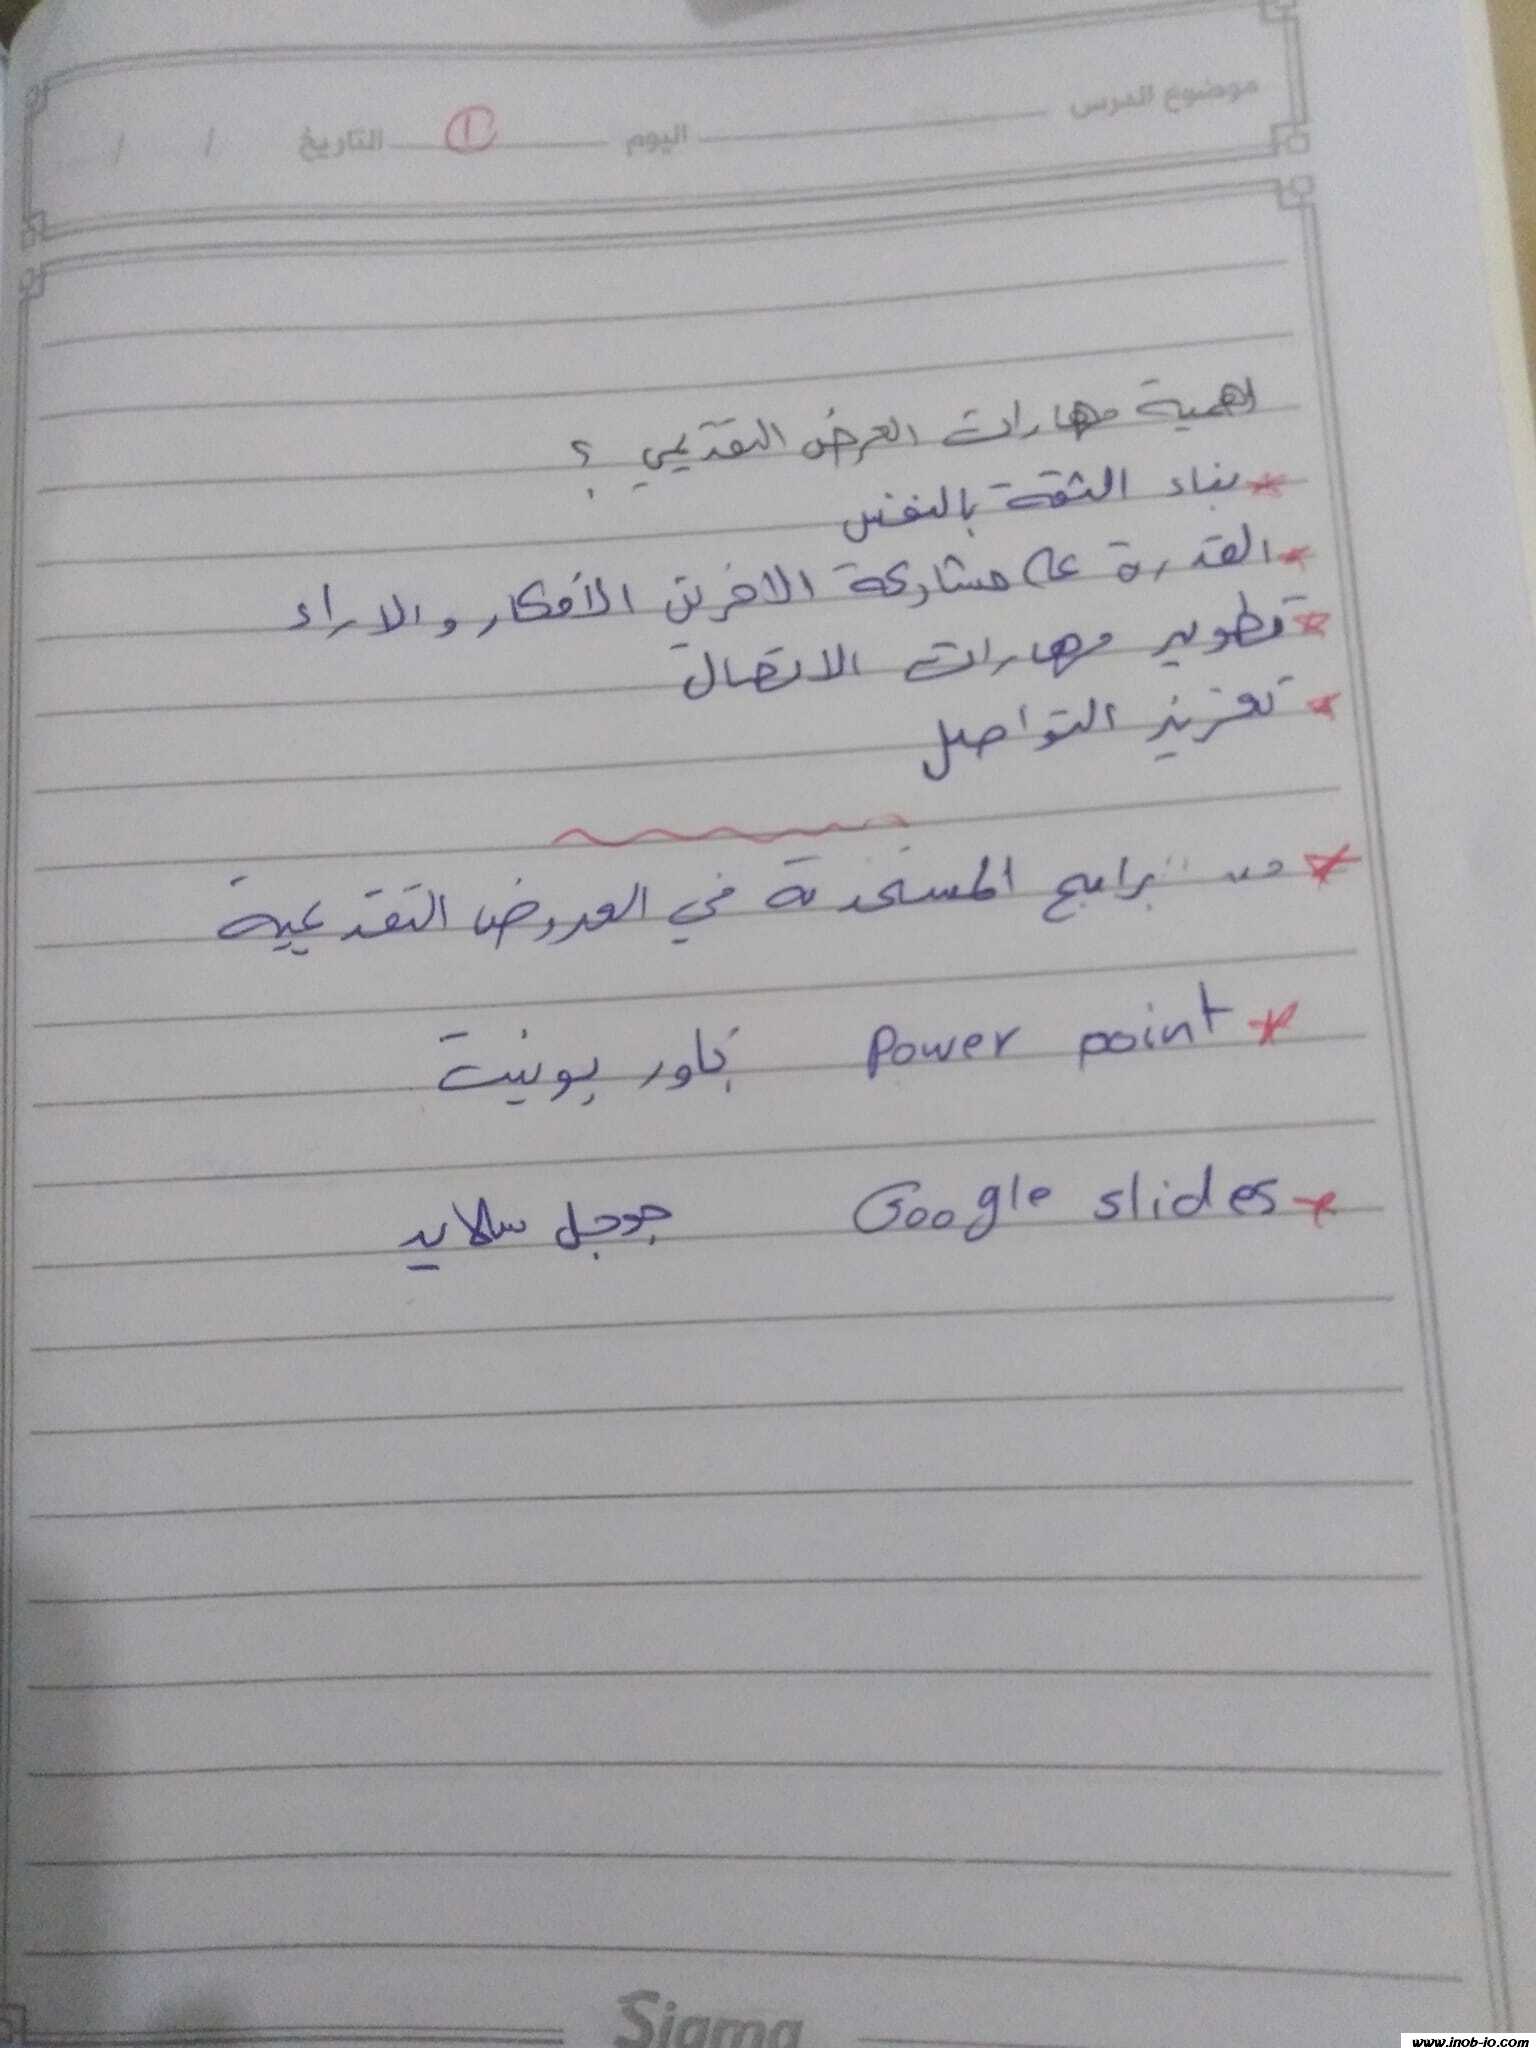 موضوع الدرس اليوم ① التاريخ / /
اهمية مهارات العرض التقديمي ؟
* بناء الثقة بالنفس
* القدرة على مشاركة الاخرين الأفكار والاراء
* تطوير مهارات الاتصال
* تعزيز التواصل
* من برامج المستخدمة في العروض التقديمية
* Power point باور بوينت
* Google slides جوجل سلايد
Sigma
www.inob-io.com